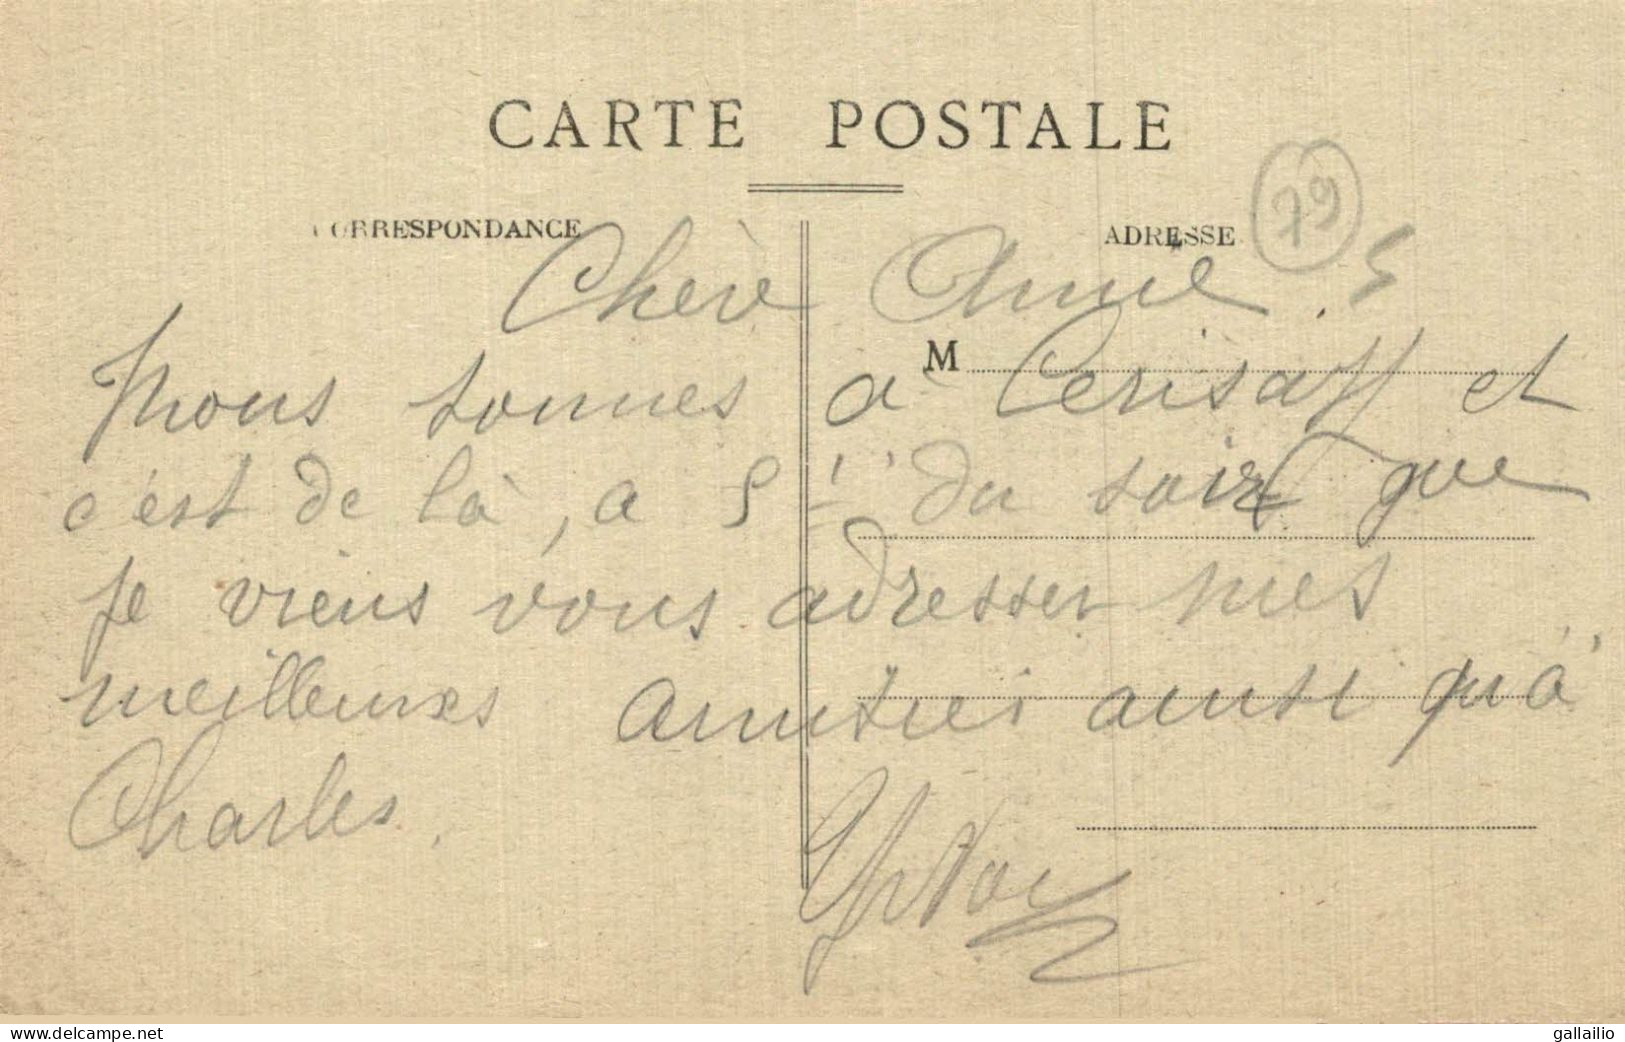 CARTE POSTALE
CORRESPONDANCE
ADRESSE
79
Chère Amie.
M
Nous sommes a Cerisay et
c'est de là, a 5 du soir que
je viens vous adresser mes
meilleures amitiés ainsi qu'à
Charles.
www.delcampe.net
gallailio